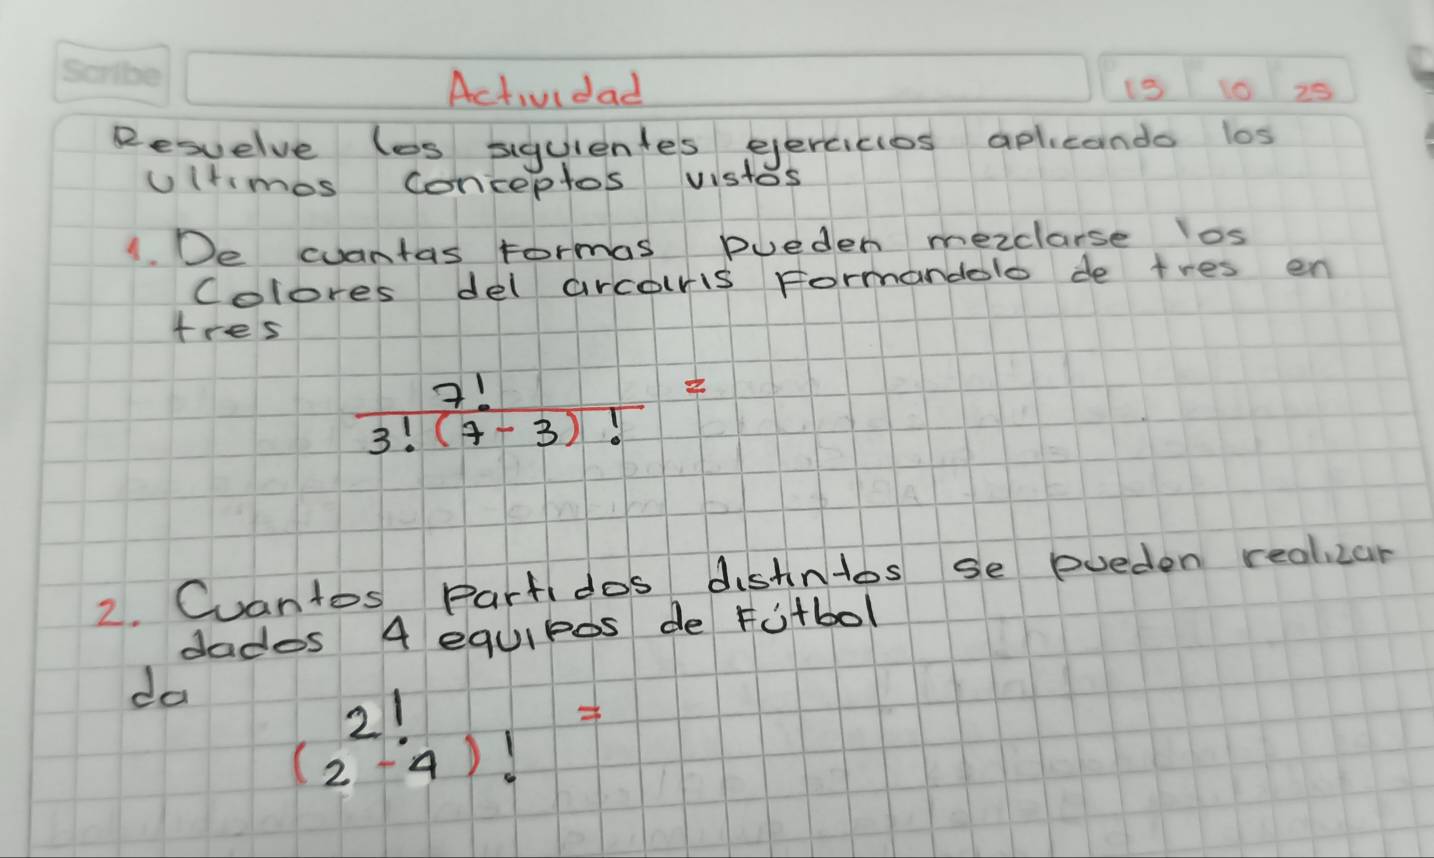 Scribe
Actividad
13 10 25
Resuelve los siguientes ejercicios aplicando los
ultimos conceptos vistos
1. De cuantas formas pueden mezclarse los
Colores del arcoiris Formandolo de tres en
tres
7! =
3! (7-3)!
2. Cuantos Partidos distintos se pueden realizar
dados 4 equipos de Fútbol
da
2! =
(2-4)!